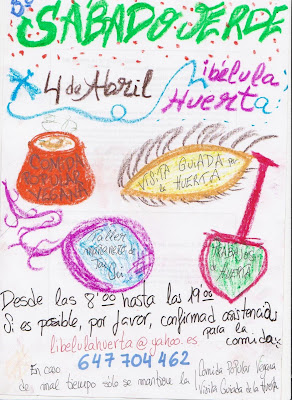 5º
SÁBADO VERDE
4 de Abril
libélula
Huerta
COMIDA
POPULAR
VEGANA
VISITA GUIADA por
la HUERTA
Taller
TRABAJOS en
la HUERTA
Desde las 8'00 hasta las 19'00
Si es posible, por favor, confirmad asistencia
para la
comida
libelulahuerta@yahoo.es
647 704 462
En caso
de mal tiempo sólo se mantiene la
Comida Popular Vegana
Visita Guiada de la Huerta